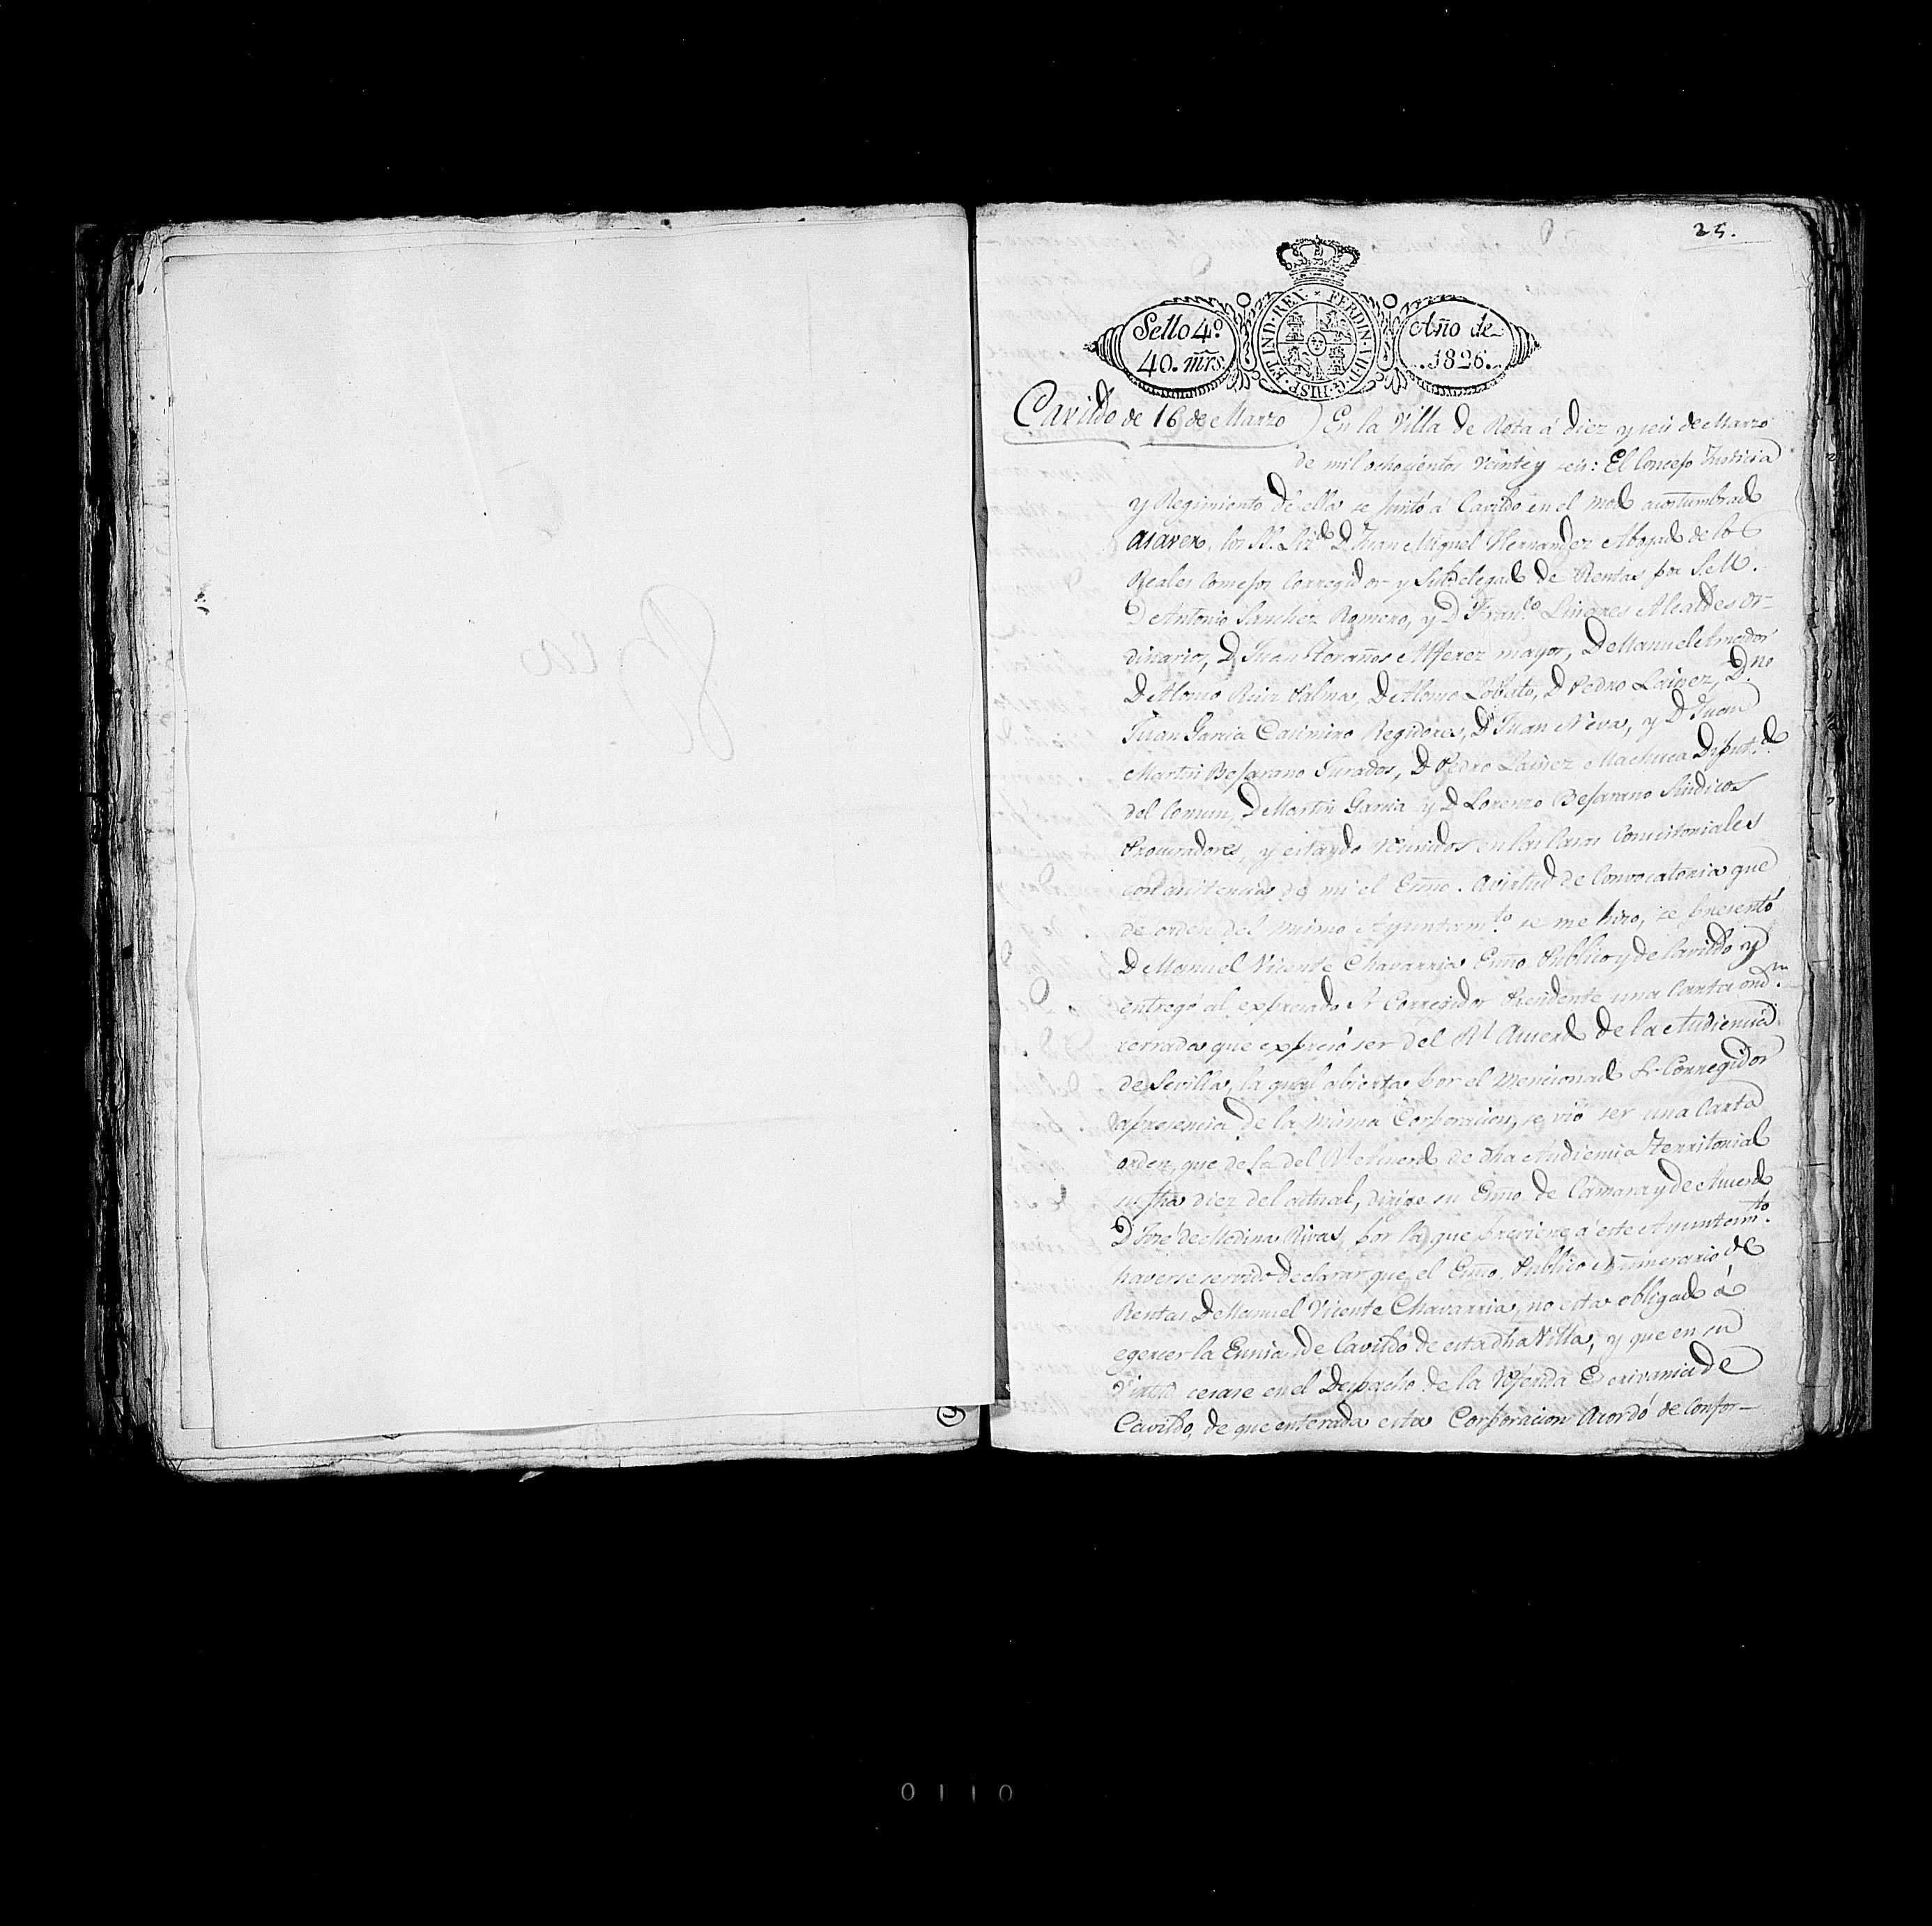 25.
Sello 4º
40. mrs.
FERDIN. VII. D. G. HISP. ET IND. REX
Año de
1826.
Cavildo de 16 de Marzo) En la Villa de Rota á diez y seis de Marzo
de mil ochocientos veinte y seis: El Concejo Justicia
y Regimiento de ella se juntó á Cavildo en el modo acostumbrado
asaver, los SS. Lizdo. D. Juan Miguel Hernandez Abogado de los
Reales Consejos Corregidor y Subdelegado de Rentas por S. M.
D. Antonio Sanchez Romero, y D. Franco. Linares Alcaldes or-
dinarios, D. Juan Alferez mayor, D. Manuel Amador
D. Alonso Ruiz Palma, D. Alonso Lobato, D. Pedro Lainez, Dn.
Juan Garcia Casimiro Regidores, D. Juan Neva, y D. Juan
Martin Bejarano Jurados, D. Pedro Lainez Machuca Diputdo.
del Comun, D. Martin Garcia y D. Lorenzo Bejarano Sindicos
Procuradores, y estando reunidos en las Casas Consistoriales
con asistencia de mi el Essno. a virtud de Convocatoria que
de orden del mismo Ayuntamto. se me hizo, se presentó
D. Manuel Vicente Chavarria Essno. Publico y de Cavildo y
entregó al expresado Sr. Corregidor Presidente una Carta orden
cerrada que expresó ser del Rl. Acuerdo de la Audiencia
de Sevilla, la qual abierta por el mencionado Sr. Corregidor
a presencia de la misma Corporacion, se vió ser una Carta
orden, que de la del Rl. Acuerdo de dha Audiencia territorial
su fha diez del actual, dirige su Essno. de Camara y de Acuerdo
D. José de Medina Rivas, por la que previene á este Ayuntamto.
haverse servido declarar que el Essno. Publico Numerario de
Rentas D. Manuel Vicente Chavarria, no esta obligado á
egercer la Essnia. de Cavildo de esta dha Villa, y que en su
virtud cesase en el Despacho de la referida Escrivania de
Cavildo, de que enterada esta Corporacion Acordó de Confor-
0110